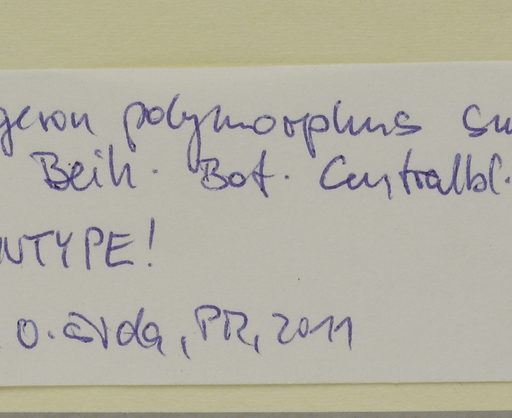 geron polymorphus su
Beih. Bot. Centralbl.
NTYPE!
O. Šída, PR, 2011